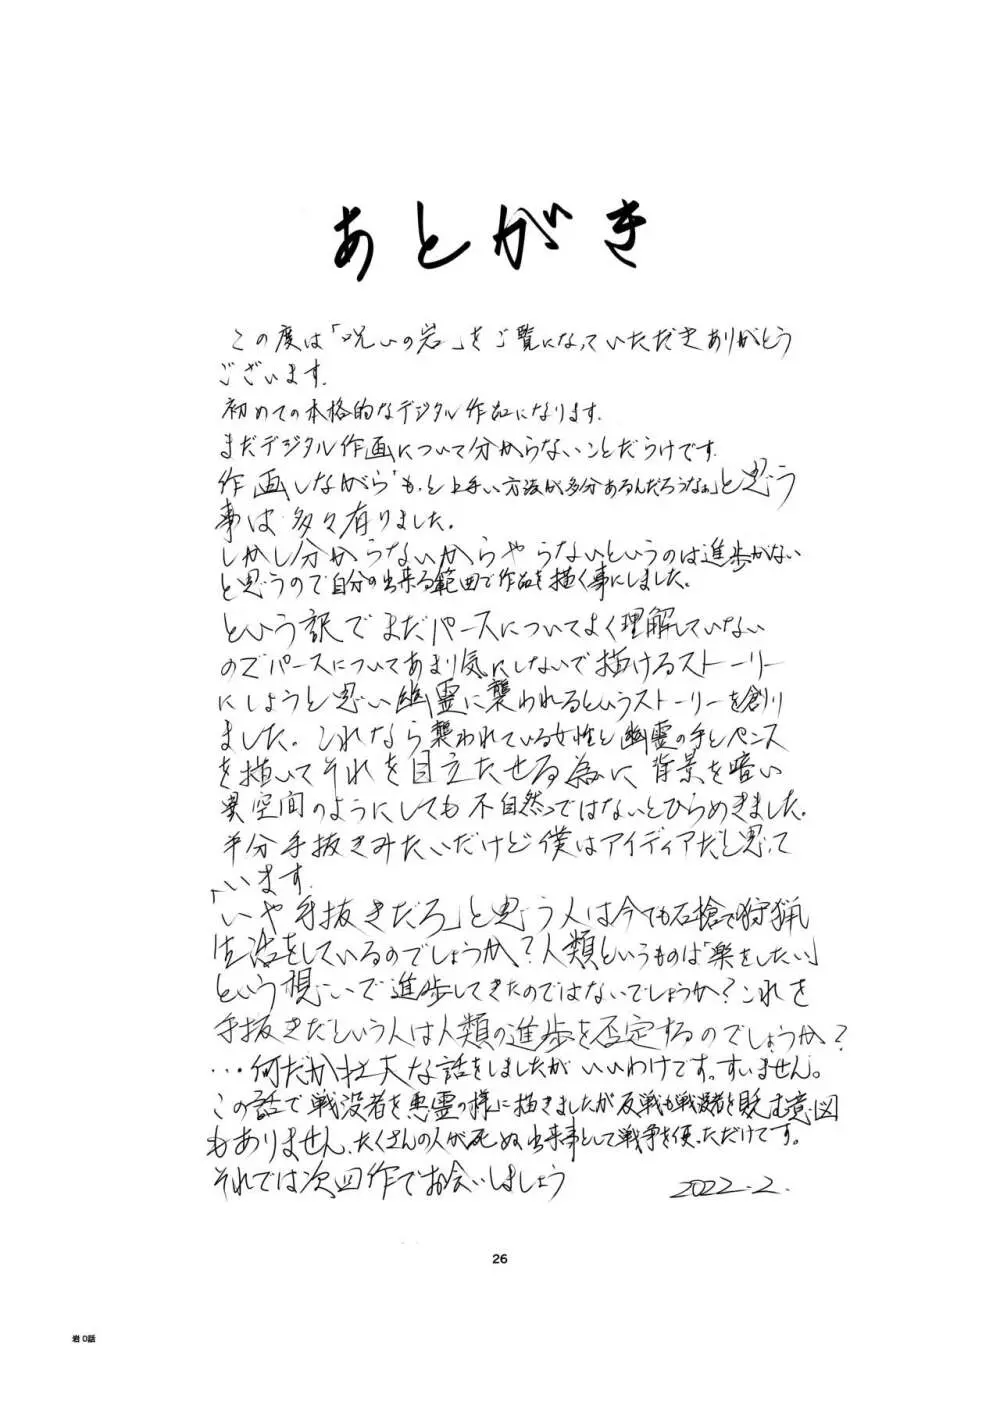 あとがき
この度は「呪いの岩」をご覧になっていただきありがとう
ございます.
初めての本格的なデジタル作品になります.
まだデジタル作画について分からないことだらけです.
作画しながら「もっと上手い方法が多分あるんだろうなぁ」と思う
事は多々有りました.
しかし分からないからやらないというのは進歩がない
と思うので自分の出来る範囲で作品を描く事にしました。
という訳でまだパースについてよく理解していない
のでパースについてあまり気にしないで描けるストーリー
にしようと思い幽霊に襲われるというストーリーを創り
ました。これなら襲われている女性と幽霊の手とペニス
を描いてそれを目立たせる為に背景を暗い
異空間のようにしても不自然ではないとひらめきました.
半分手抜きみたいだけど僕はアイディアだと思って
います.
「いや手抜きだろ」と思う人は今でも石槍で狩猟
生活をしているのでしょうか?人類というものは「楽をしたい」
という想いで進歩してきたのではないでしょうか?これを
手抜きだという人は人類の進歩を否定するのでしょうか?
…何だか壮大な話をしましたがいいわけです。すいません。
この話で戦没者を悪霊の様に描きましたが反戦も戦没者を貶す意図
もありません、たくさんの人が死ぬ出来事として戦争を使っただけです。
それでは次回作でお会いしましょう
2022.2.
26
岩 0話